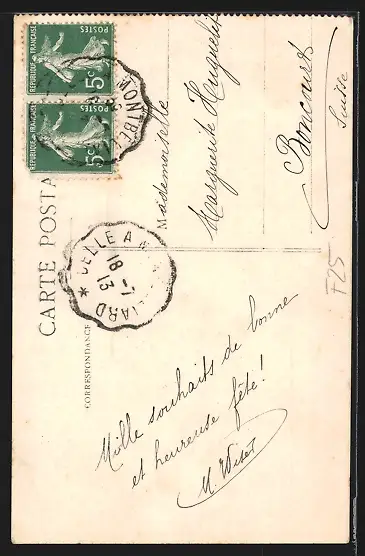 RÉPUBLIQUE FRANÇAISE
POSTES
5c
RÉPUBLIQUE FRANÇAISE
POSTES
5c
MONTBEL
CARTE POSTA
CORRESPONDANCE
DELLE A M
IARD *
18 -1
13
Mademoiselle
Marguerite
Boncourt
Suisse
F25
Mille souhaits de bonne
et heureuse fête!
M.